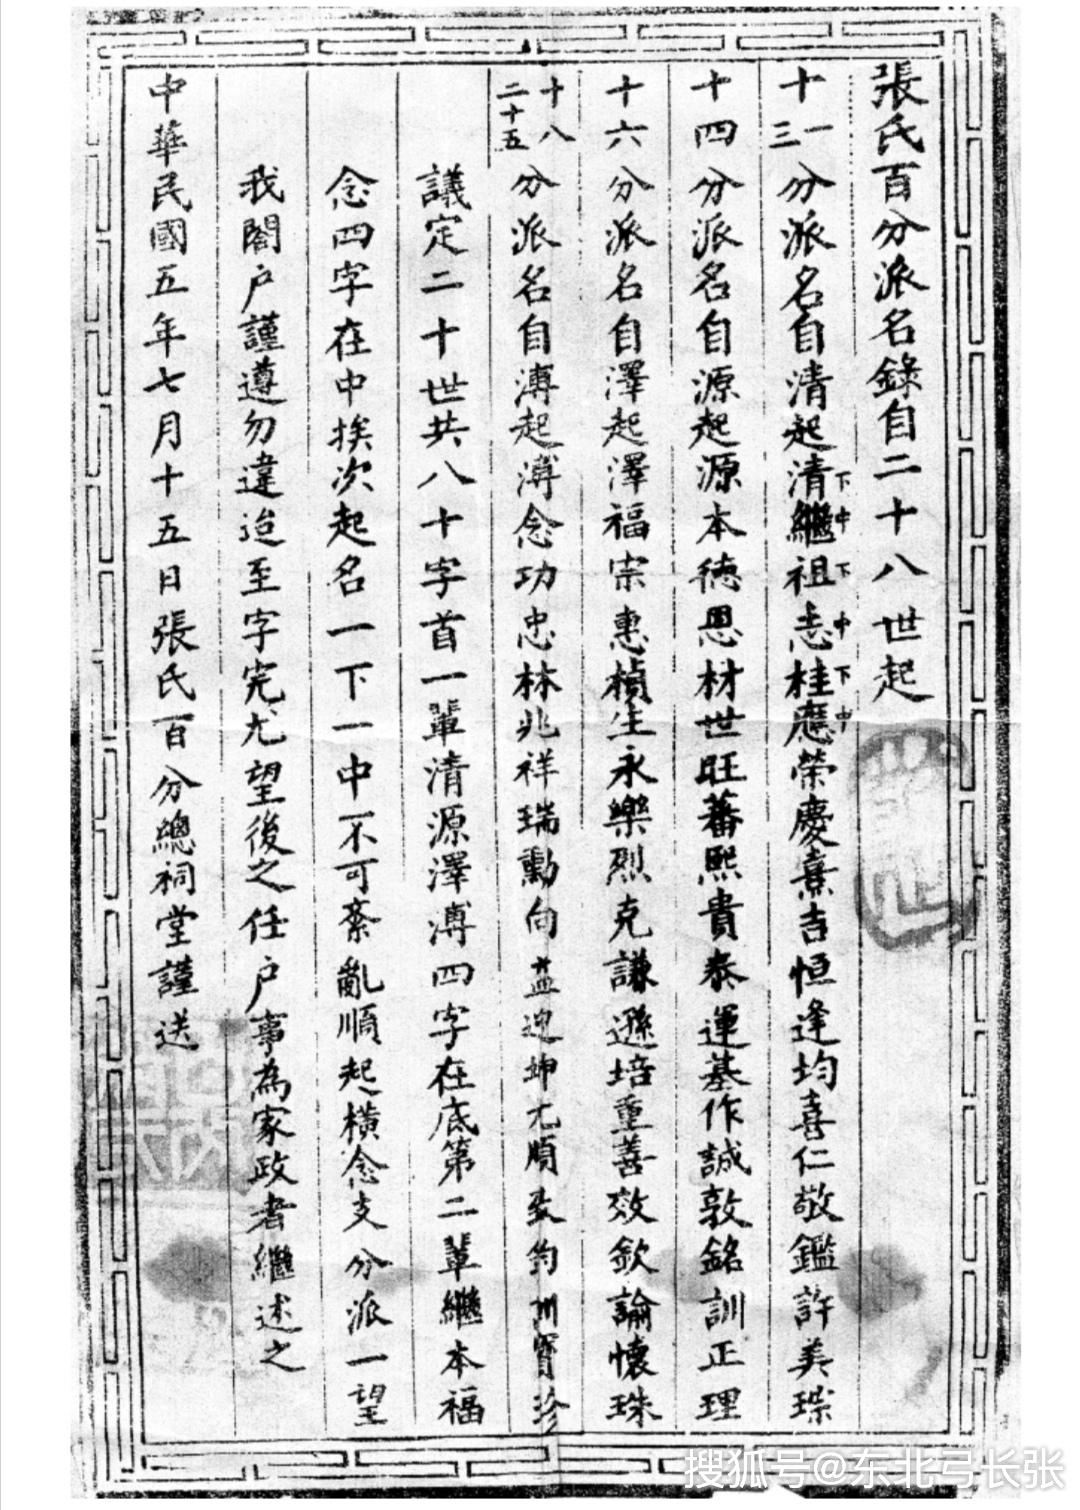 張氏百分派名錄自二十八世起
十一三分派名自清起清繼祖志桂應榮慶熹吉恒逢均喜仁敬鑑許美琮
下中下中下中
十四分派名自源起源本德恩材世旺蕃熙貴泰運基作誠敦銘訓正理
十六分派名自澤起澤福宗惠楨生永樂烈克謙遜培重善效欽諭懷珠
十八二十五分派名自溥起溥念功忠林兆祥瑞勳向益迎坤元順致鈞訓寶珍
議定二十世共八十字首一輩清源澤溥四字在底第二輩繼本福
念四字在中挨次起名一下一中不可紊亂順起橫念支分派一望
我閤户謹遵勿違迨至字完尤望後之任户事為家政者繼述之
中華民國五年七月十五日張氏百分總祠堂謹送
搜狐号@东北弓长张